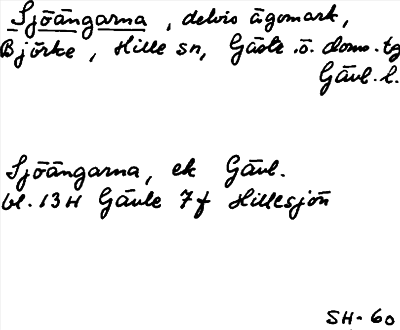 Sjöängarna, delvis ägomark,
Björke, Hille sn, Gästr. ö. doms. tg
Gävl. l.
Sjöängarna, ek Gävl.
bl. 13H Gävle 7f Hillesjön
SH-60